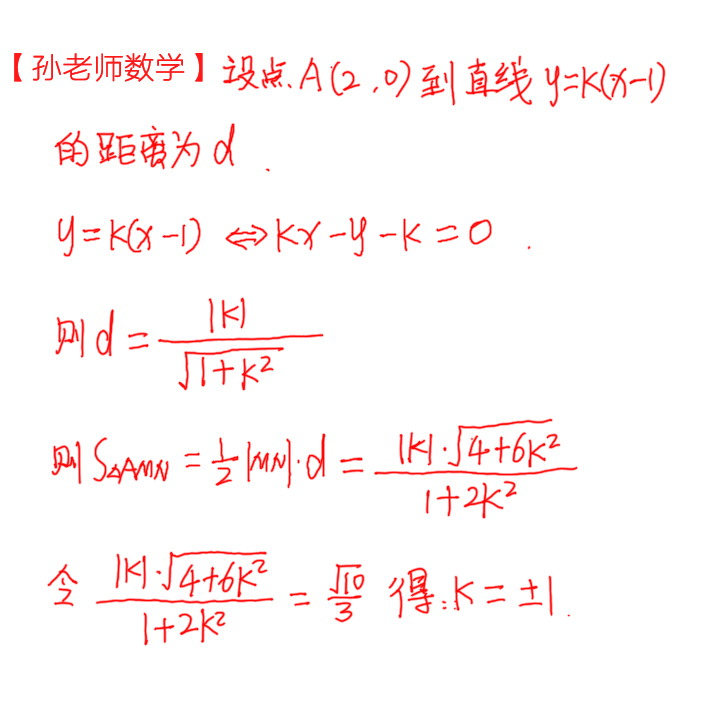 【孙老师数学】设点A(2,0)到直线y=k(x-1)
的距离为d.
y=k(x-1)⇔kx-y-k=0.
则d=|k|/√(1+k²)
则S△AMN=1/2|MN|·d=|k|·√(4+6k²)/(1+2k²)
令 |k|·√(4+6k²)/(1+2k²)=√10/3 得:k=±1.